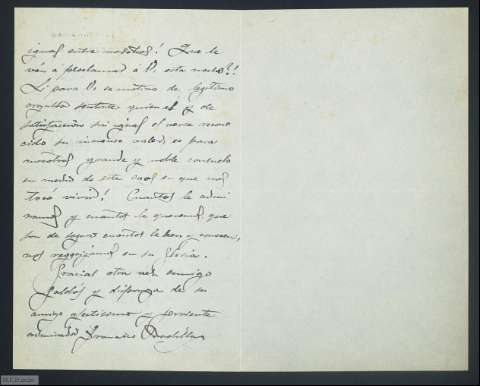 igual entre nosotros! Que le
ván á proclamar á V. esta noche?!
Si para V. es motivo de legítimo
orgullo sentirse quien es y de
satisfacción sin igual el verse recono
cido su inmenso valer, es para
nosotros grande y noble consuelo
en medio de este caos en que nos
tocó vivir! Cuantos le admi
ramos y cuantos le queremos, que
son de seguro cuantos le leen y conocen,
nos regocijamos en su gloria.
Gracias otra vez amigo
Galdós y disponga de su
amigo afectísimo y ferviente
admirador